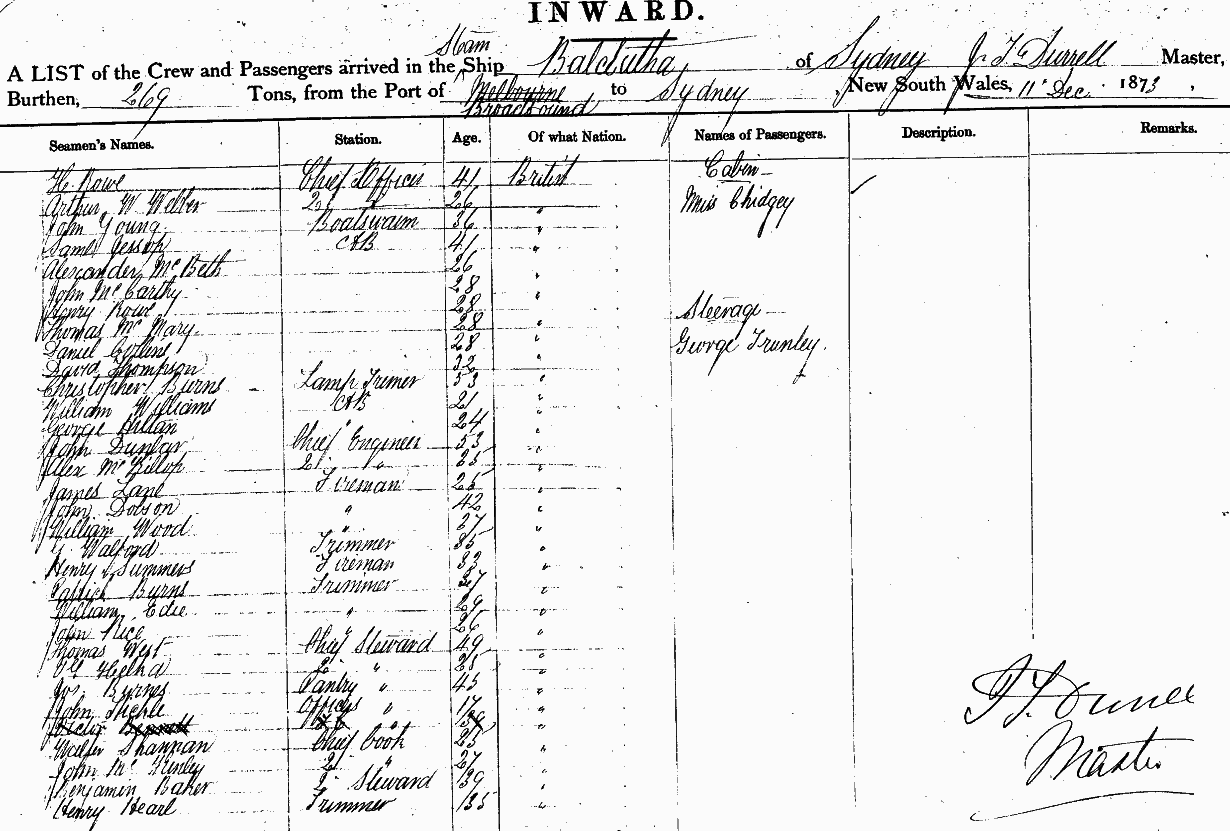 INWARD.
Steam
A LIST of the Crew and Passengers arrived in the Ship Balclutha, of Sydney J. T. Durrell Master,
Burthen, 269 Tons, from the Port of Melbourne to Sydney New South Wales, 11 Dec. 1873,
Broadsound
Seamen's Names. Station. Age. Of what Nation. Names of Passengers. Description. Remarks.
H. Rowe Chief Officer 41 British Cabin
Arthur W Webber 2d " 26 " Miss Chidgey
John Young Boatswain 36 "
James Jessop AB 41 "
Alexander McBeth 26 "
John McCarthy 28 "
Henry Rowe 28 " Steerage
Thomas McMary 28 "
Daniel 28 " George Trunley.
David Thompson 32 "
Christopher Burns Lamp Trimer 53 "
William Williams AB 21 "
George " 24 "
John Dunbar Chief Engineer 53 "
Alex McKillop 2d " 35 "
James Lane Fireman 25 "
John Dobson " 42 "
William Wood " 27 "
Walford Trimmer 35 "
Henry Summers Fireman 33 "
Patrick Burns Trimmer 27 "
William Edie " 29 "
John Rice 26 "
Thomas West Chief Steward 49 "
2d " 25 "
Jos. Burnes Pantry " 45 "
John Officers " 17 "
Walter Shannan Chief Cook 25 "
John McKinley 2d " 27 "
Benjamin Baker 2d Steward 39 "
Henry Hearl Trimmer 35 "
J. T. Durrell
Master